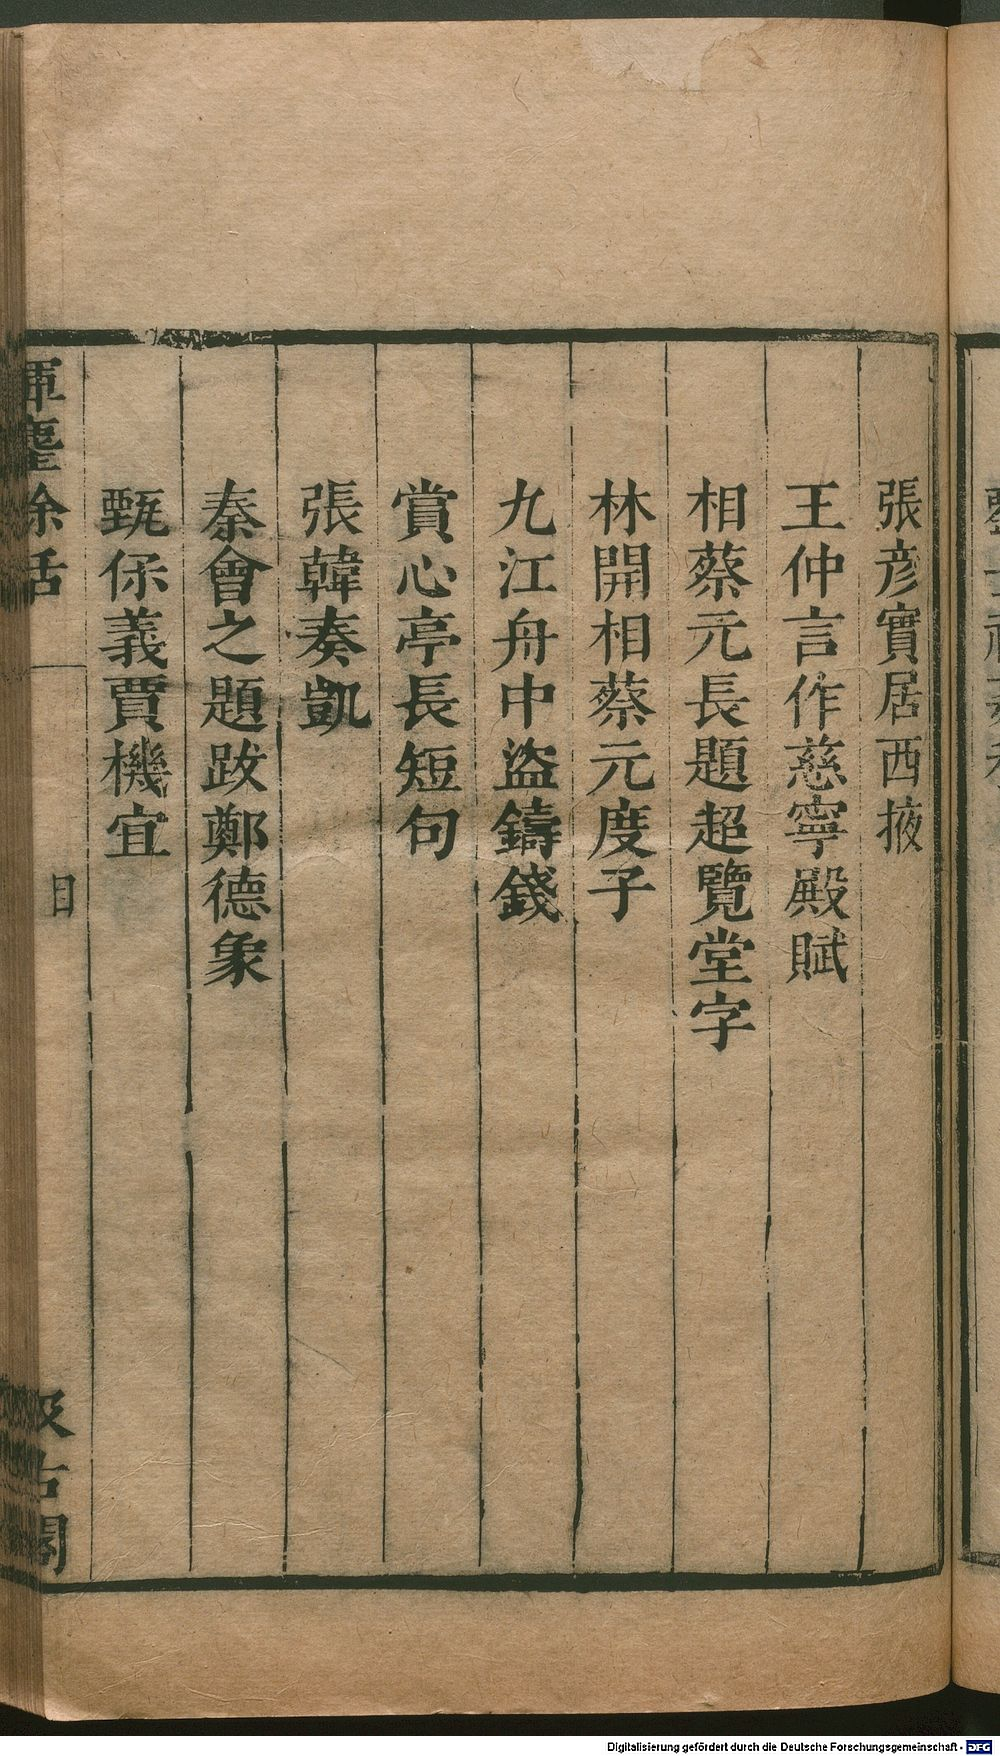 張彦實居西掖
王仲言作慈寧殿賦
相蔡元長題超覽堂字
林開相蔡元度子
九江舟中盜鑄錢
賞心亭長短句
張韓奏凱
秦會之題跋鄭德象
甄保義賈機宜
揮麈余話
目
汲古閣
Digitalisierung gefördert durch die Deutsche Forschungsgemeinschaft - DFG